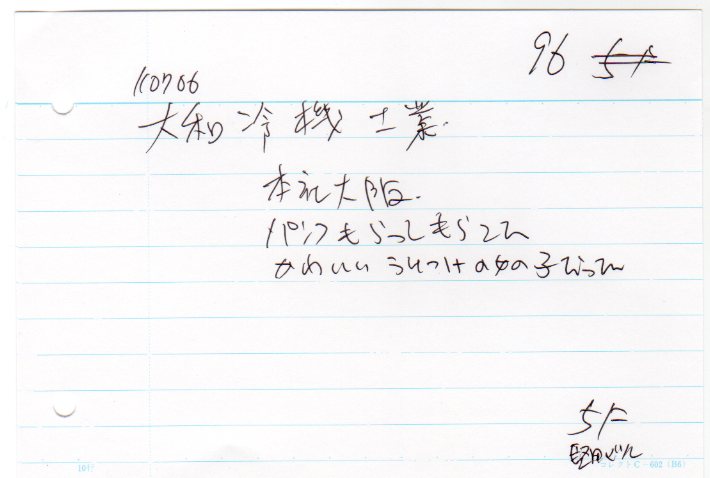 96 5F
110706
大和冷機工業.
本社大阪.
パンフもらってもらった
かわいいうけつけの女の子だった
5F
ビル
107
コレクトC-602(B6)